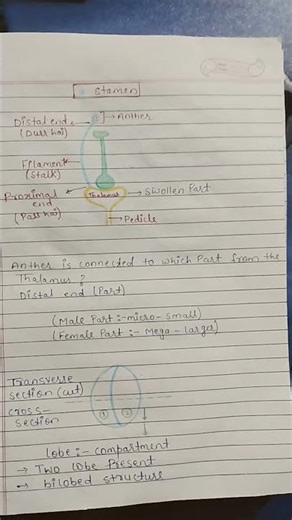 Stamen
Distal end
(Durr hai)
→ Anther
Filament
(Stalk)
Proximal
end
(Pass hai)
Thalamus
→ Swollen Part
→ Pedicle
Anther is connected to which Part from the
Thalamus ?
Distal end (Part)
(Male Part :- micro - small)
(Female Part :- Mega - larger)
Transverse
section (cut)
cross -
section
① ②
lobe :- compartment
→ Two lobe Present
→ bilobed structure